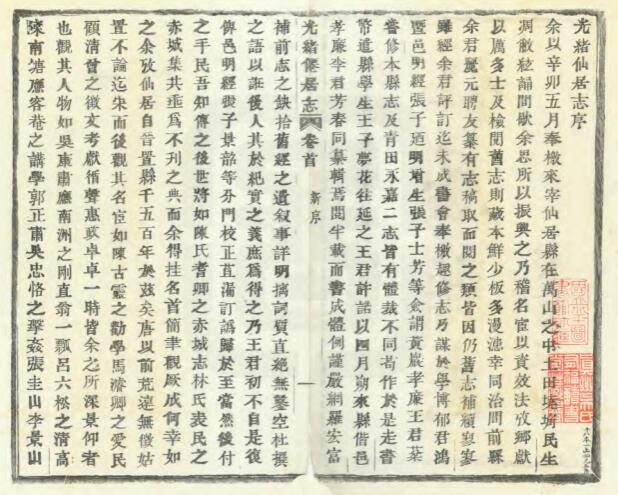 光緒仙居志序
余以辛卯五月奉檄來宰仙居縣在萬山之中土田墝埆民生
凋敝絃誦間歇余思所以振興之乃稽名宦以資效法攷鄉獻
以厲多士及檢閱舊志則藏本鮮少板多漫漶幸同治間前縣
余君麗元聘友纂有志稿取而閱之類皆因仍舊志補綴寥寥
雖經余君評訂迄未成書會奉檄趣修志乃謀於學博郁君鴻
暨邑明經張子廼明增生張子士芳等僉謂黃巖孝廉王君棻
嘗修本縣志及青田永嘉二志皆有體裁不同苟作於是走書
幣遣縣學生王子夢花往延之王君許諾以四月朔來縣偕邑
孝廉李君芳春同纂輯焉閱半載而書成體例謹嚴網羅宏富
光緒僊居志 卷首 新序 一
補前志之缺拾舊經之遺叙事詳明摛詞質直絕無鑿空杜撰
之語以誑後人其於紀實之義庶為得之乃王君初不自是復
俾邑明經張子景韶等分門校正茸漏訂譌歸於至當然後付
之手民吾知傳之後世將如陳氏耆卿之赤城志林氏表民之
赤城集共垂為不刊之典而余得挂名首簡聿觀厥成何幸如
之余攷仙居自晉置縣千五百年於茲矣唐以前荒遠無徵姑
置不論迄宋而後觀其名宦如陳古靈之勸學馬濂卿之愛民
顧清晉之徵文考獻循聲惠政卓卓一時皆余之所深景仰者
也觀其人物如吳康肅應南洲之剛直翁一瓢呂六松之清高
陳南塘應客菴之講學郭正肅吳忠恪之擊姦張圭山李景山